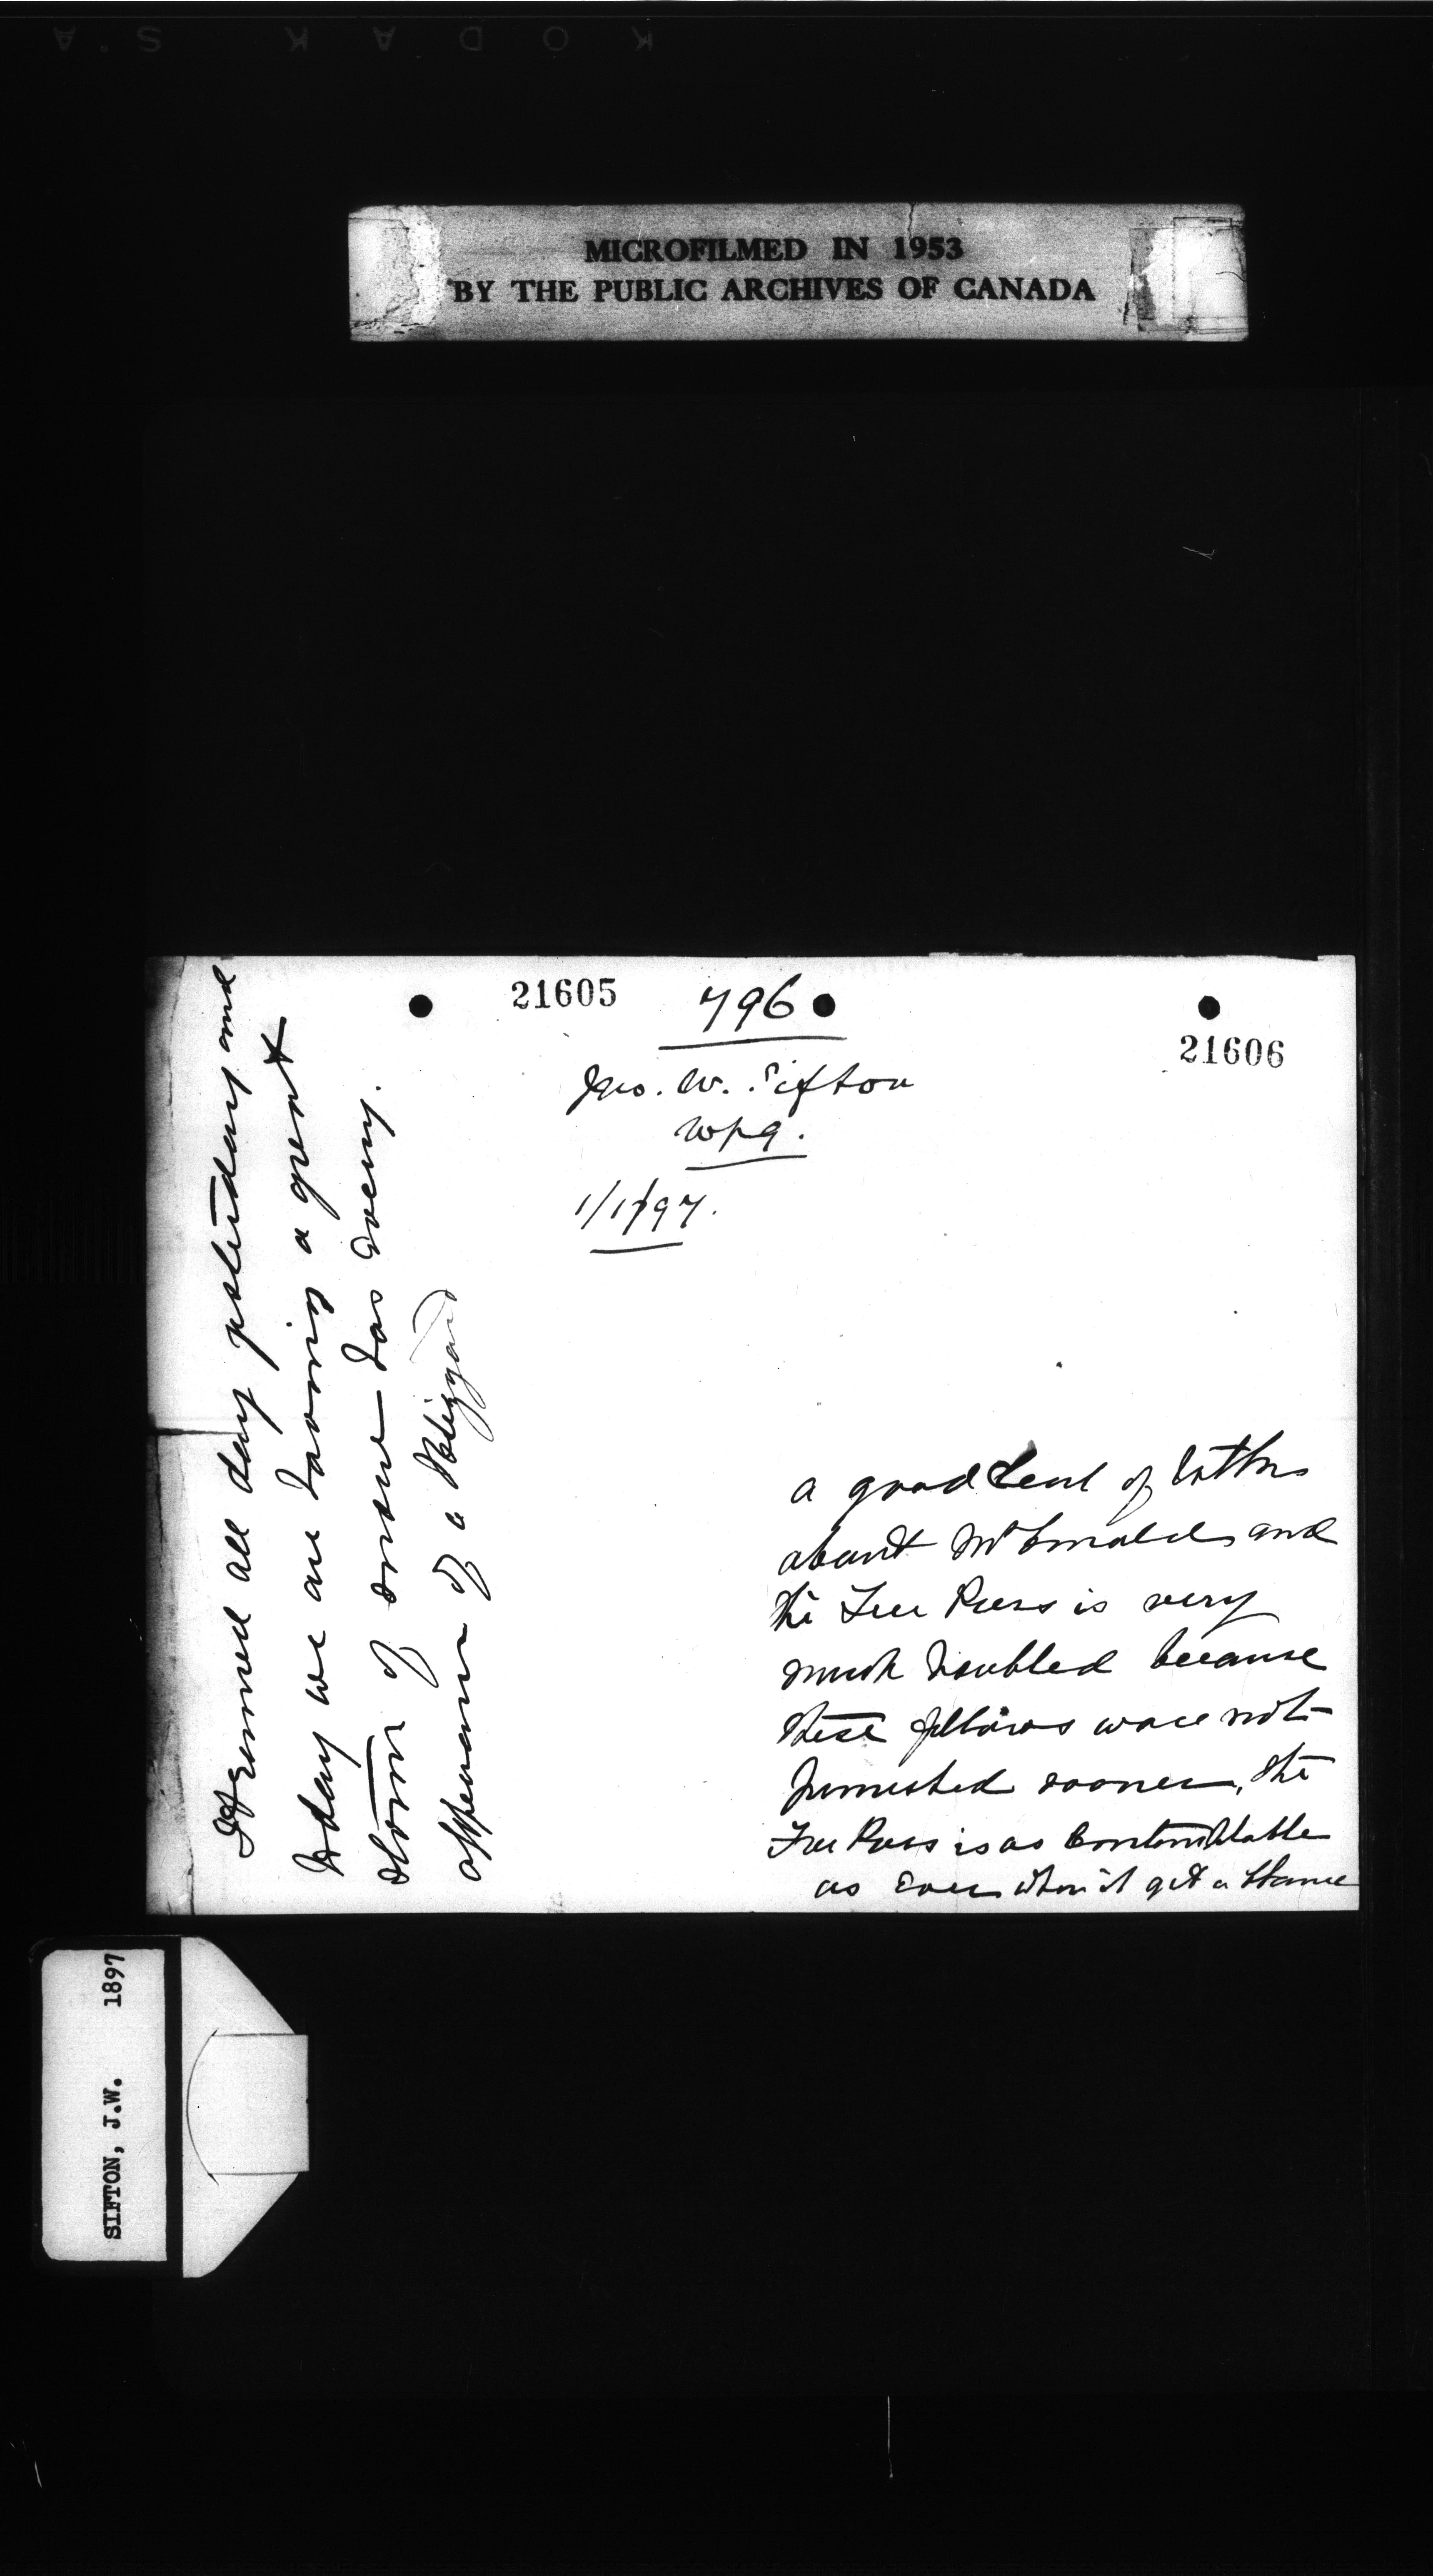 KODAK S.A
MICROFILMED IN 1953
BY THE PUBLIC ARCHIVES OF CANADA
21605
796
Jno. W. Sifton
Wpg.
1/1/97.
21606
It rained all day yesterday and
to day we are having a great
storm of snow has every
appearance of a Blizzard
a good deal of bother
about McDonald and
the Free Press is very
much troubled because
these fellows were not
punished sooner, the
Free Press is as contemptable
as ever when it get a chance
SIFTON, J.W. 1897